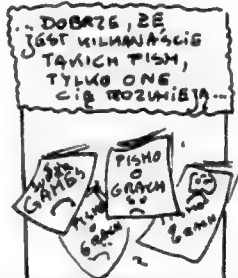 ... DOBRZE, ŻE
JEST KILKANAŚCIE
TAKICH PISM,
TYLKO ONE
CIĘ ROZUMIEJĄ...
GAMES
PISMO
O
GRACH
PISMO
O
GRACH
O
GRACH